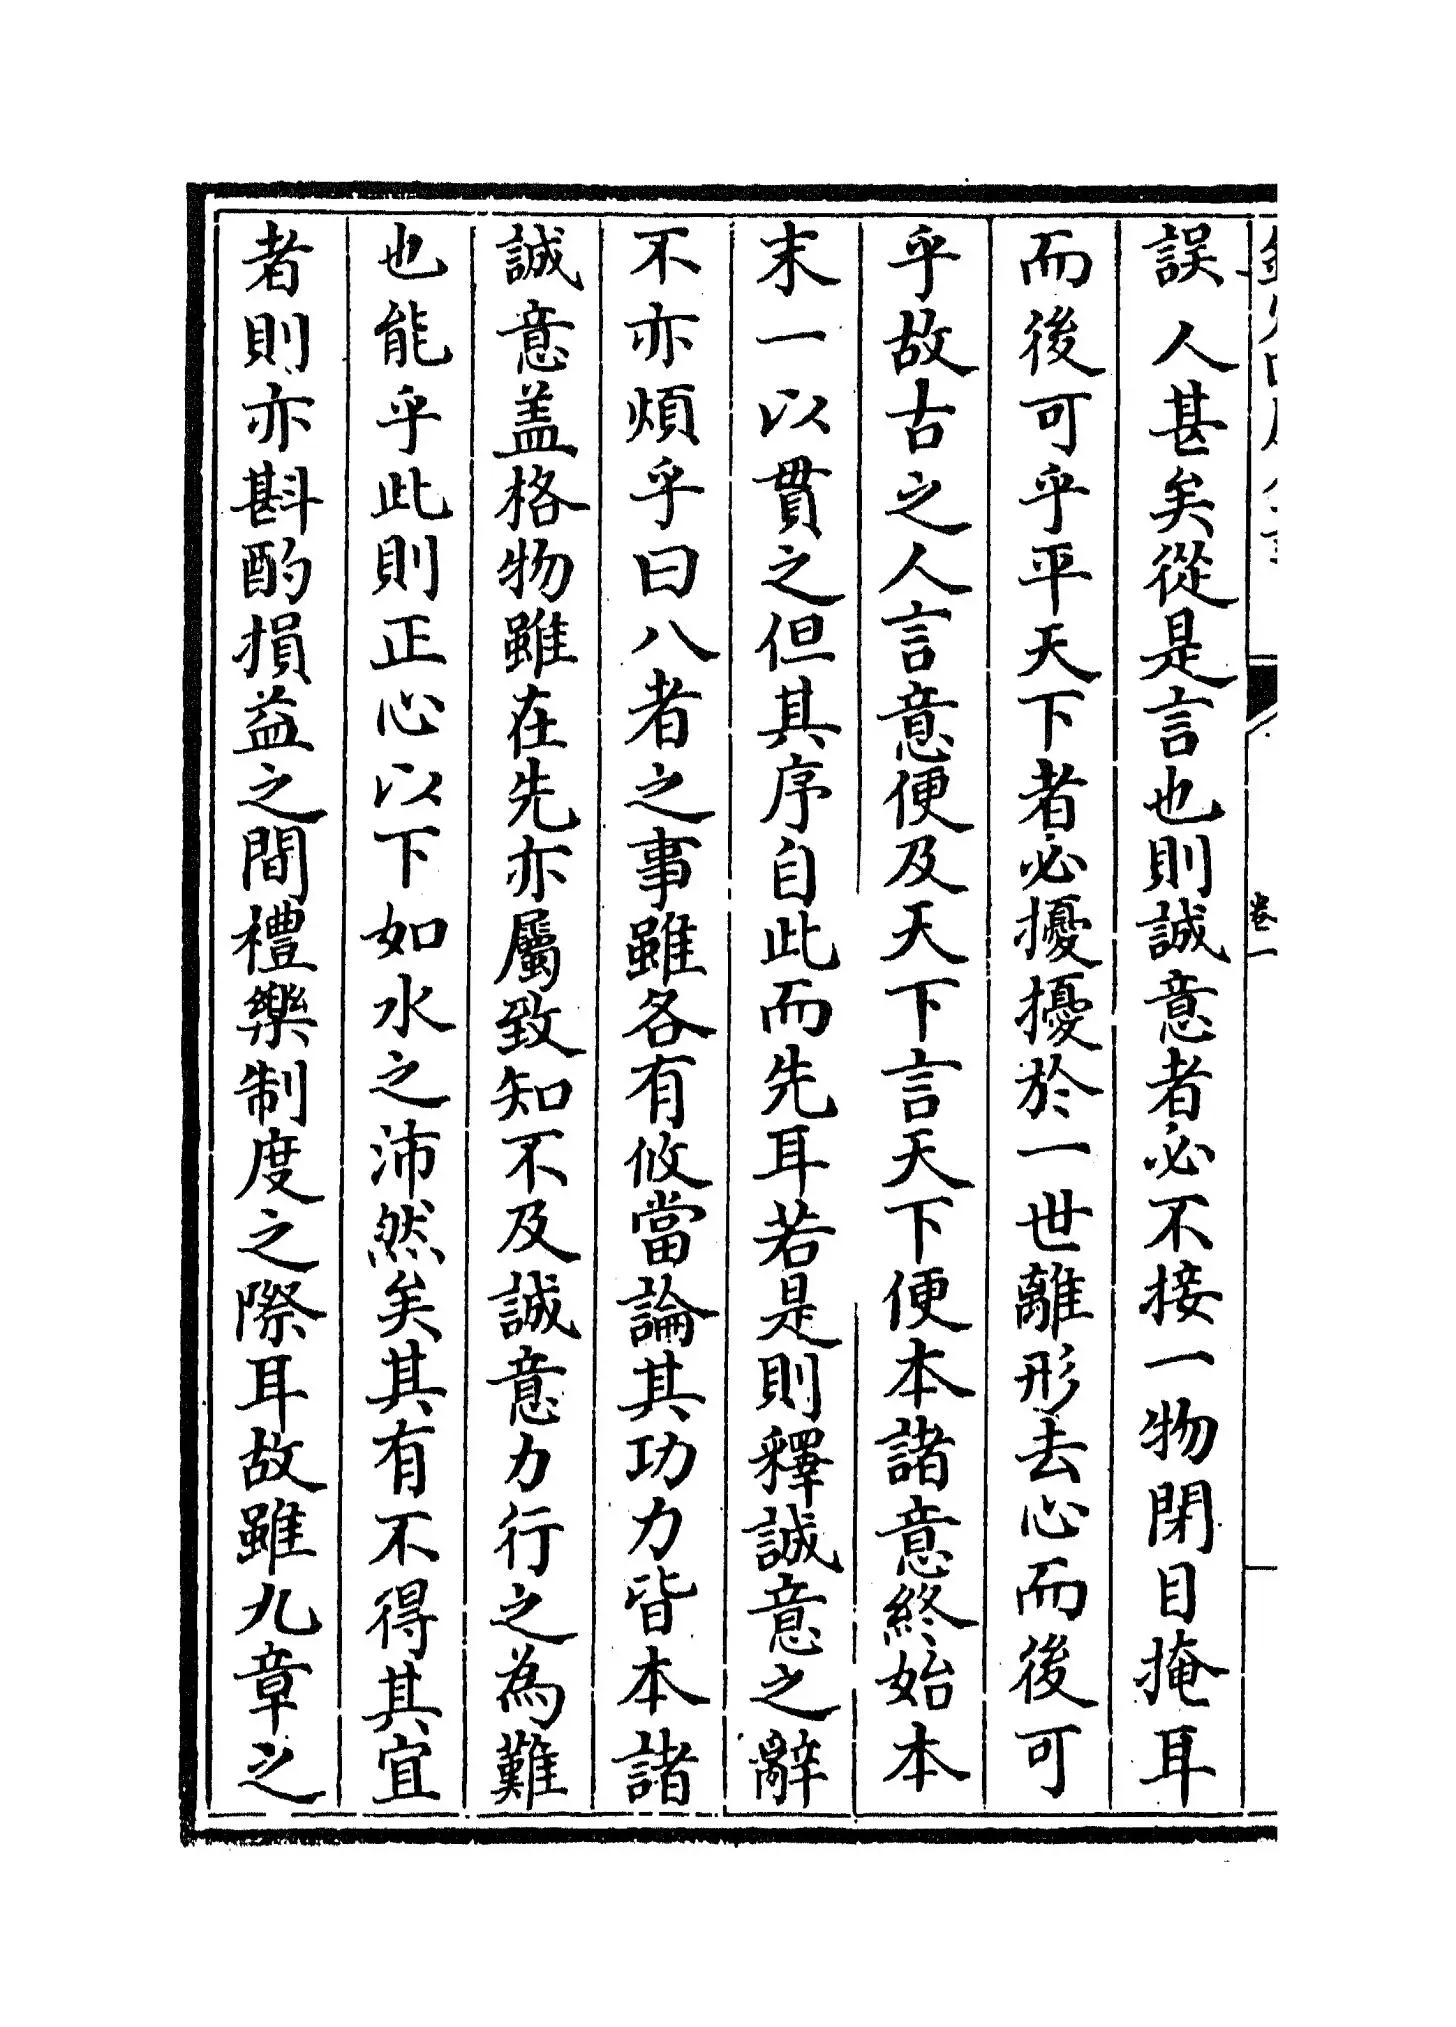 誤人甚矣從是言也則誠意者必不接一物閉目掩耳
而後可乎平天下者必擾擾於一世離形去心而後可
乎故古之人言意便及天下言天下便本諸意終始本
末一以貫之但其序自此而先耳若是則釋誠意之辭
不亦煩乎曰八者之事雖各有攸當論其功力皆本諸
誠意盖格物雖在先亦屬致知不及誠意力行之為難
也能乎此則正心以下如水之沛然矣其有不得其宜
者則亦斟酌損益之間禮樂制度之際耳故雖九章之
卷一